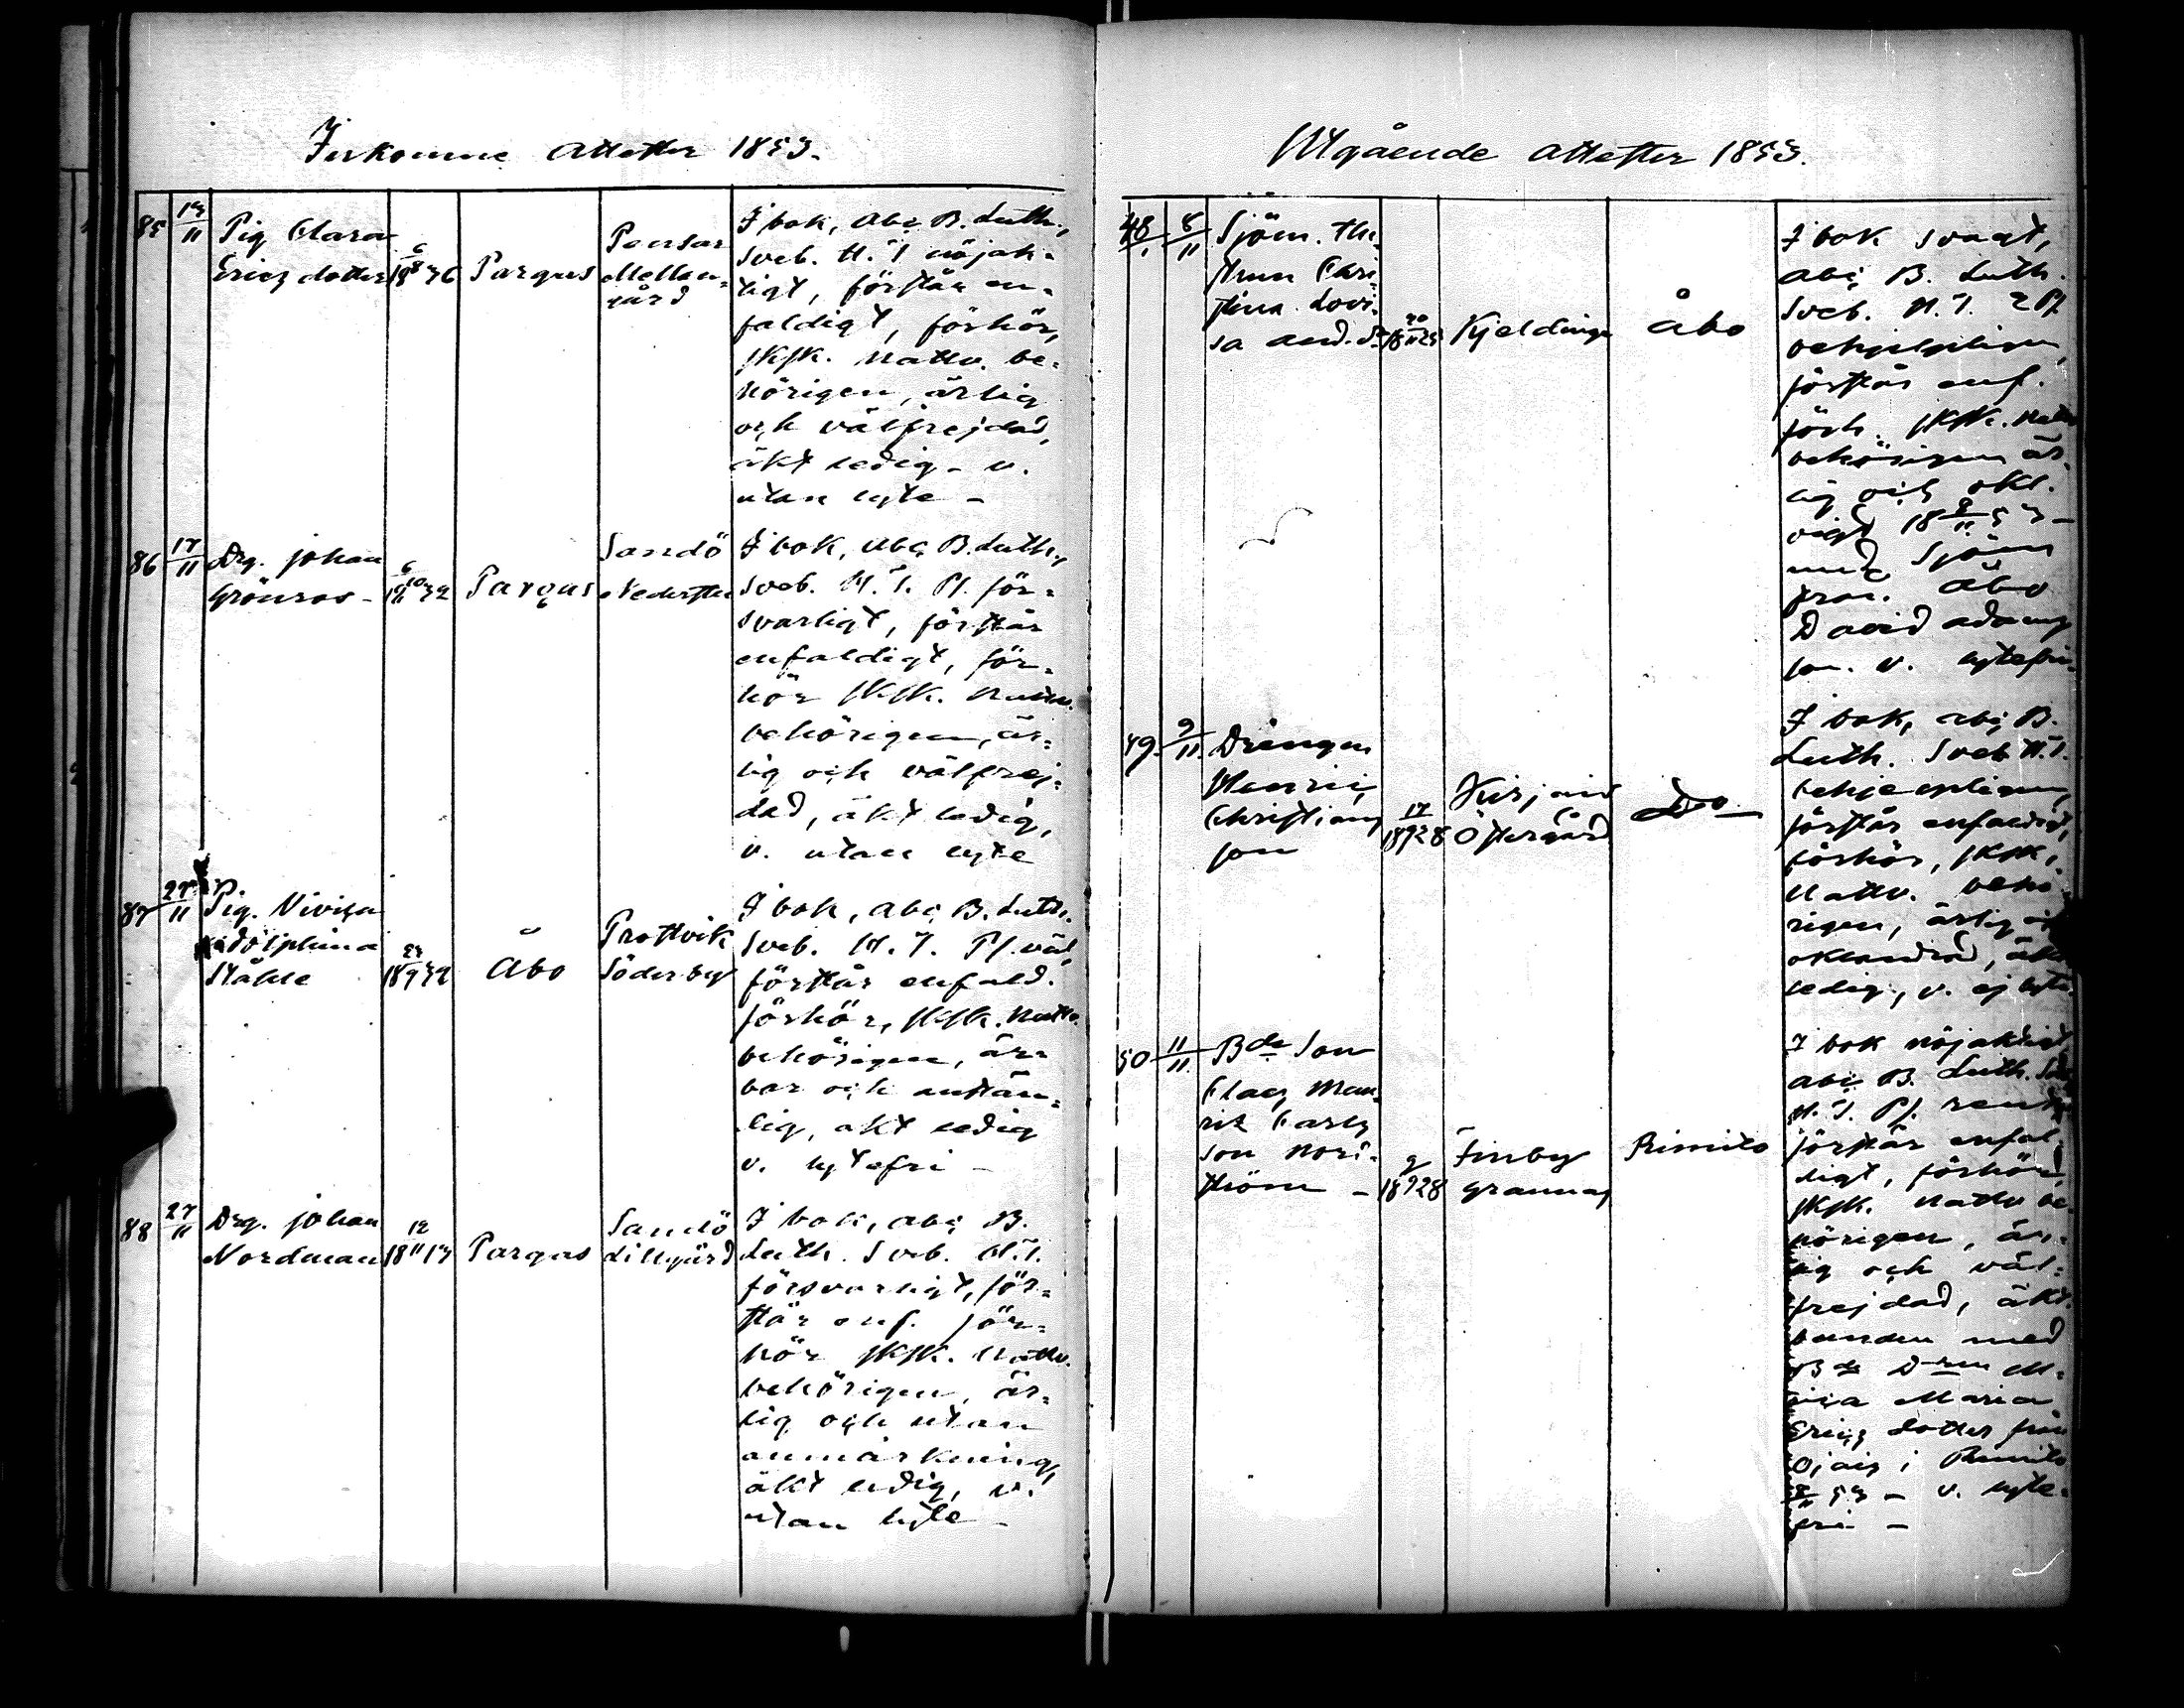 Inkomne Attester 1853.
85 13/11 Pig Clara
Ericsdotter 6/8 1836 Pargus Pensar
Mellan-
gård
I bok, abc, B. Luth.,
Sveb. H.T. nöjak-
tigt, förstår en-
faldigt, förhör,
sksk. Nattv. be-
hörigen, ärlig
och välfrejdad,
äkt ledig - v.
utan lyte -
86 17/11 Drg. Johan
Grönroos - 6/10 1832 Pargus Sandö
Nederstu
I bok, abc, B. Luth.,
Sveb. H.T. Pf. för-
svarligt, förstår
enfaldigt, för-
hör sksk. Nattv.
behörigen, är-
lig och välfrej-
dad, äkt ledig,
v. utan lyte
87 27/11 Pig. Viviga
Adolphina
Ståhle 1832 Åbo Prostvik
Söderby
I bok, abc, B. Luth.
Sveb. H.T. Pf. väl,
förstår enfald.
förhör, sksk. Nattv.
behörigen, är-
bar och anstän-
lig, äkt ledig
v. lytefri -
88 27/11 Drg. Johan
Nordman 12/11 1813 Pargas Sandö
Lillgård
I bok, abc, B.
Luth. Sveb. H.T.
försvarligt, för-
står enf. för-
hör sksk. Nattv.
behörigen, är-
lig och utan
anmärkning,
äkt ledig, v.
utan lyte -
Utgående Attester 1853.
48 8/11 Sjöm. Hu-
strun Chri-
stina Lovi-
sa And. dr 20/11 1825 Kjeldinge Åbo
I bok svagt,
abc B. Luth.
Sveb. H.T. & Pf.
behjelpligen,
förstår enf.
förh. sksk. Nattv
behörigen är-
lig och okl.
vigd 18 8/11 53 -
med Sjöm
från Åbo
David Adams
son. v. lytefri-
49. 9/11. Drängen
Henric
Christians
son 17/9 1828 Kirjais
Östergård Do
I bok, abc B.
Luth. Sveb H.T.
behjelpligen,
förstår enfaldigt,
förhör, sksk,
Nattv. behö-
rigen, ärlig o
oklandrad, äkta
ledig, v. ej lyte.
50 11/11 Bde Son
Claes Mau-
ritz Carls
son Nord-
ström - 9/9 1828 Finby
Grannas Rimito
I bok nöjaktigt
abc B. Luth. Sveb
H.T. Pf.
förstår enfal-
digt, förhörd,
sksk. Nattv be-
hörigen, är-
lig och väl-
frejdad, äkt.
bunden med
Bde Dren
Maria
Erics dotter från
Ojais i Rimito
8/11 53 - v. lyte-
fri -